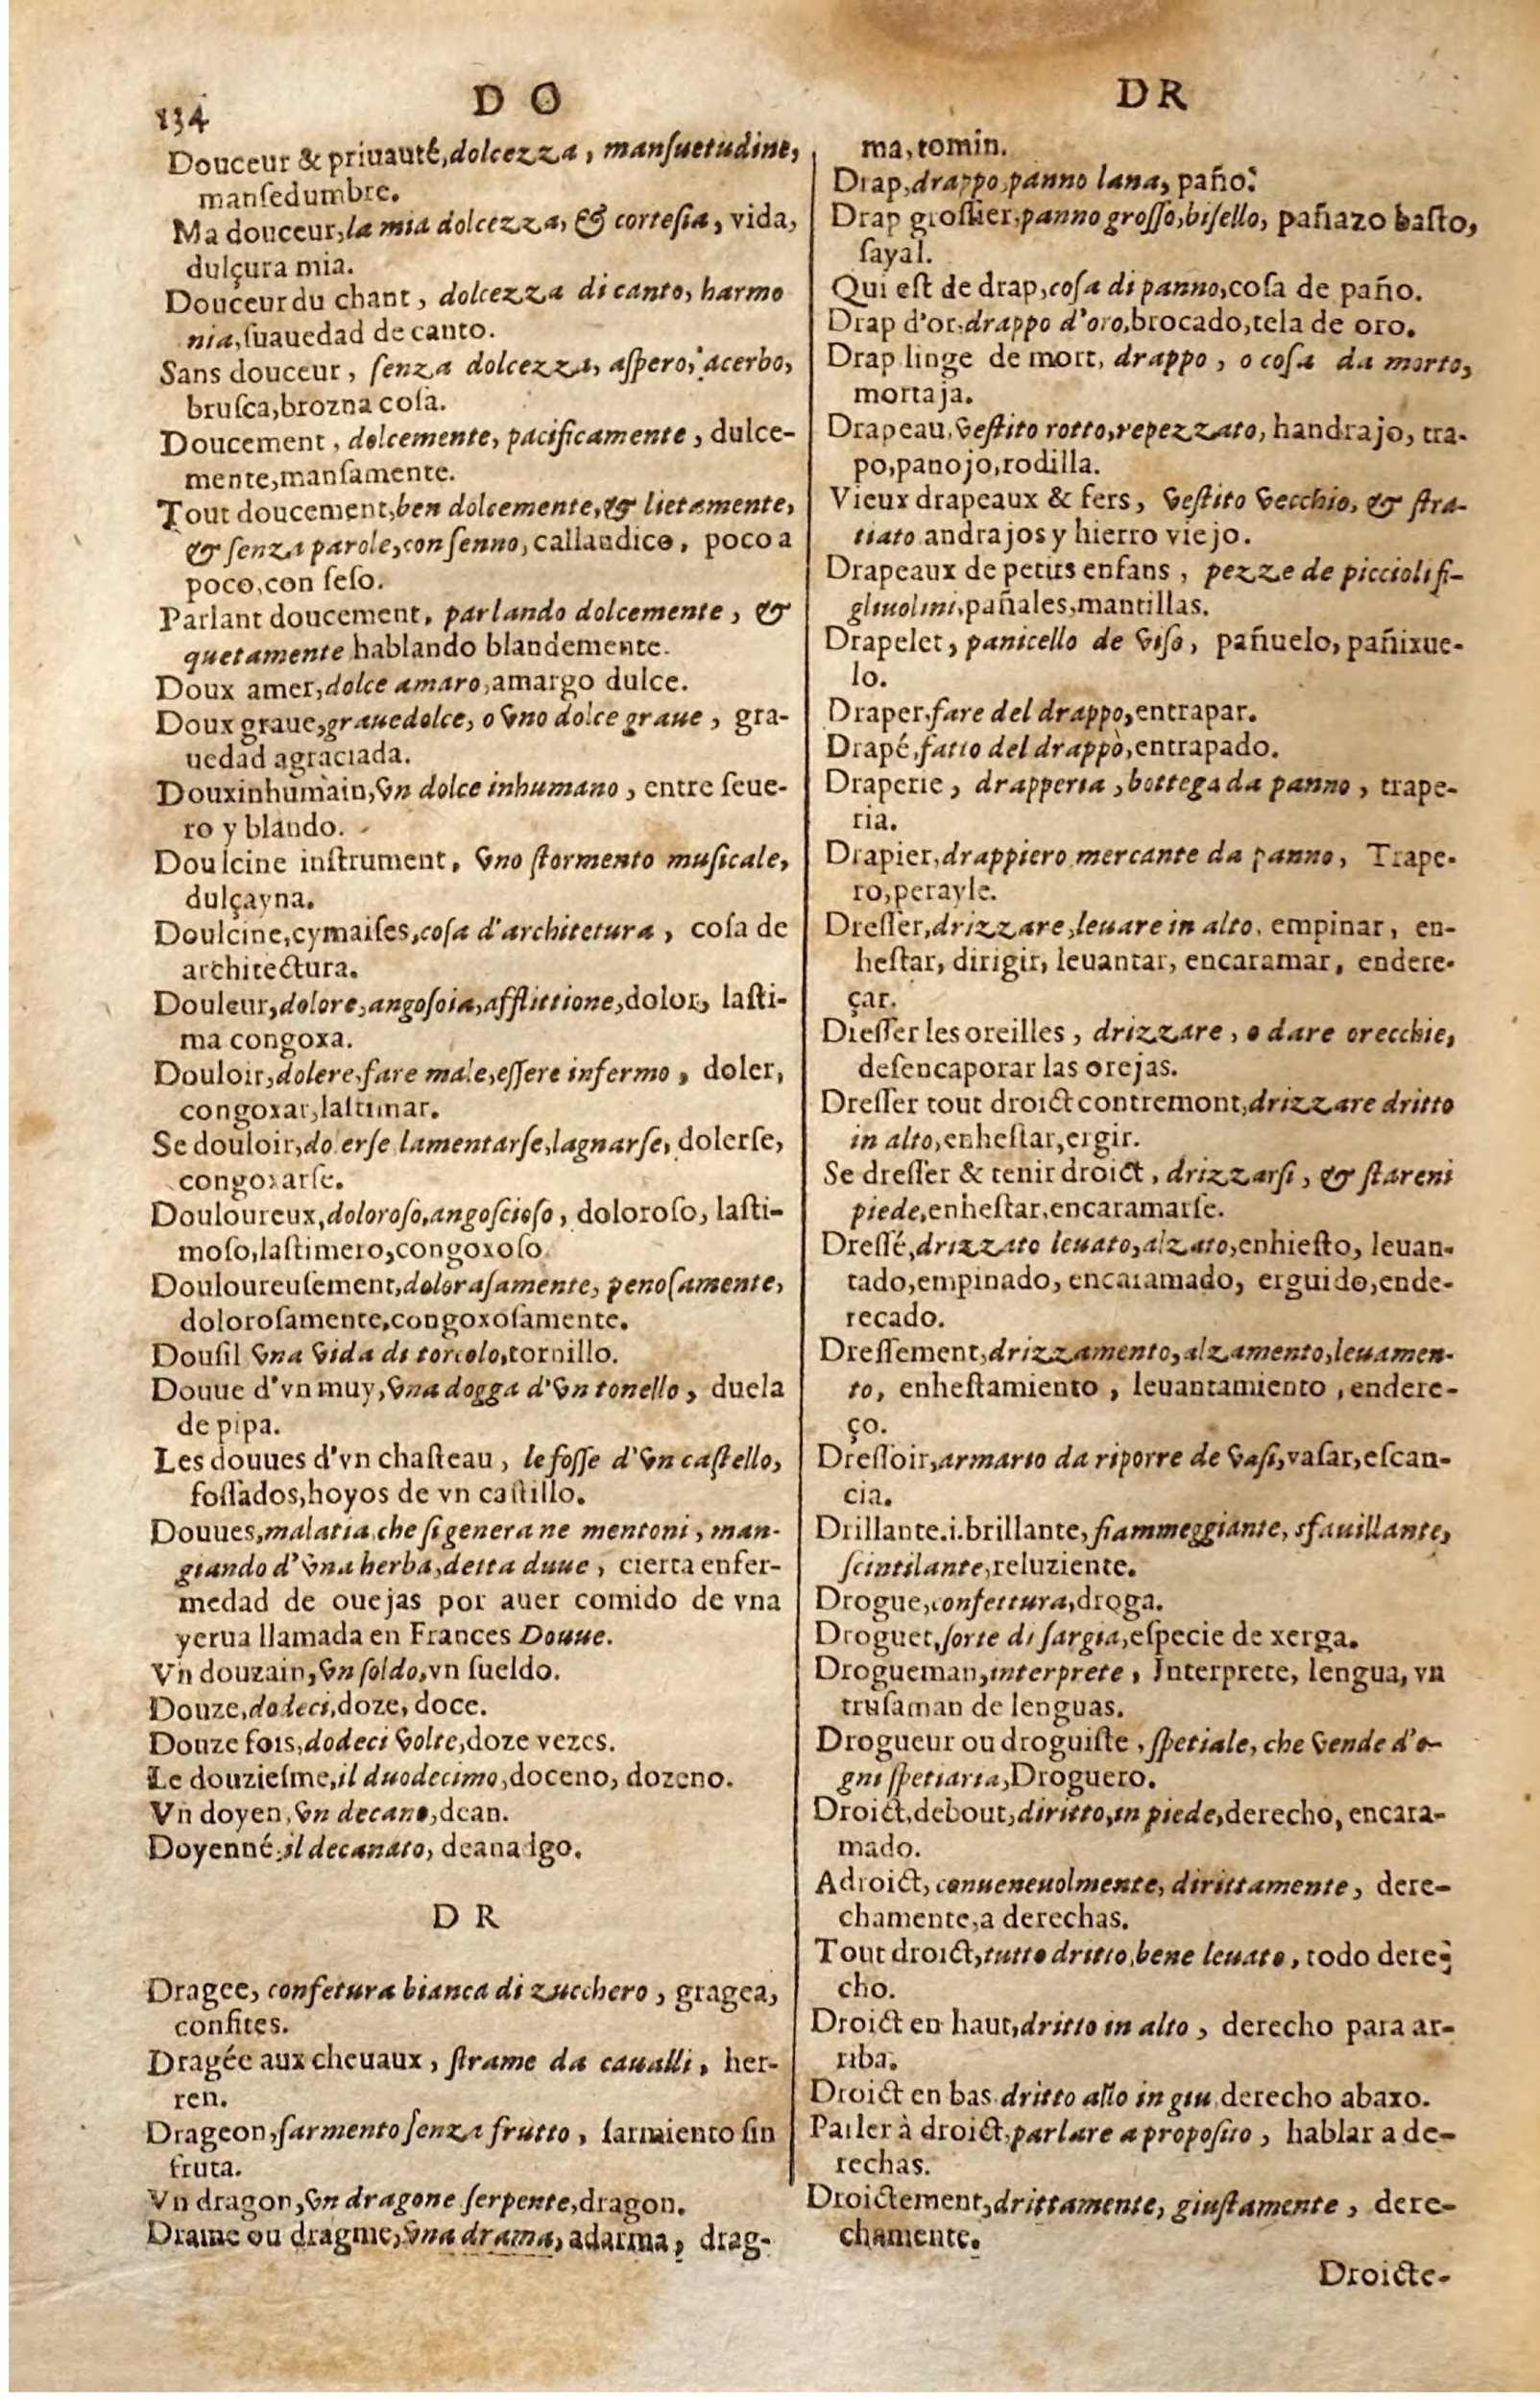 134
D O
DR
Douceur & priuauté, dolcezza, mansuetudine,
mansedumbre.
Ma douceur, la mia dolcezza, & cortesia, vida,
dulçura mia.
Douceur du chant, dolcezza di canto, harmo
nia, suauedad de canto.
Sans douceur, senza dolcezza, aspero, acerbo,
brusca, brozna cosa.
Doucement, dolcemente, pacificamente, dulce-
mente, mansamente.
Tout doucement, ben dolcemente, & lietamente,
& senza parole, con senno, callandico, poco a
poco, con seso.
Parlant doucement, parlando dolcemente, &
quetamente hablando blandemente.
Doux amer, dolce amaro, amargo dulce.
Doux graue, graue dolce, o vno dolce graue, gra-
uedad agraciada.
Doux inhumain, vn dolce inhumano, entre seue-
ro y blando.
Doulcine instrument, vno stormento musicale,
dulçayna.
Doulcine, cymaises, cosa d'architetura, cosa de
architectura.
Douleur, dolore, angosoia, afflittione, dolor, lasti-
ma congoxa.
Douloir, dolere, fare male, essere infermo, doler,
congoxar, lastimar.
Se douloir, dolerse lamentarse, lagnarse, dolerse,
congoxarse.
Douloureux, doloroso, angoscioso, doloroso, lasti-
moso, lastimero, congoxoso
Douloureusement, dolorasamente, penosamente,
dolorosamente, congoxosamente.
Dousil vna vida di torcolo, tornillo.
Douue d'vn muy, vna dogga d'vn tonello, duela
de pipa.
Les douues d'vn chasteau, le fosse d'vn castello,
fossados, hoyos de vn castillo.
Douues, malatia che si genera ne mentoni, man-
giando d'vna herba, detta duue, cierta enfer-
medad de ouejas por auer comido de vna
yerua llamada en Frances Douue.
Vn douzain, vn soldo, vn sueldo.
Douze, dodeci, doze, doce.
Douze fois, dodeci volte, doze vezes.
Le douziesme, il duodecimo, doceno, dozeno.
Vn doyen, vn decano, dean.
Doyenné, il decanato, deanadgo.
D R
Dragee, confetura bianca di zucchero, gragea,
confites.
Dragée aux cheuaux, strame da caualli, her-
ren.
Drageon, sarmento senza frutto, sarmiento sin
fruta.
Vn dragon, vn dragone serpente, dragon.
Drame ou dragme, vna drama, adarma, drag-
ma, tomin.
Drap, drappo, panno lana, paño.
Drap grossier, panno grosso, bisello, pañazo basto,
sayal.
Qui est de drap, cosa di panno, cosa de paño.
Drap d'or, drappo d'oro, brocado, tela de oro.
Drap linge de mort, drappo, o cosa da morto,
mortaja.
Drapeau, vestito rotto, repezzato, handrajo, tra-
po, panojo, rodilla.
Vieux drapeaux & fers, vestito vecchio, & stra-
tiato andrajos y hierro viejo.
Drapeaux de petits enfans, pezze de piccioli fi-
gliuolini, pañales, mantillas.
Drapelet, panicello de viso, pañuelo, pañixue-
lo.
Draper, fare del drappo, entrapar.
Drapé, fatto del drappo, entrapado.
Draperie, drapperia, bottega da panno, trape-
ria.
Drapier, drappiero mercante da panno, Trape-
ro, perayle.
Dresser, drizzare, leuare in alto, empinar, en-
hestar, dirigir, leuantar, encaramar, endere-
çar.
Dresser les oreilles, drizzare, o dare orecchie,
desencaporar las orejas.
Dresser tout droict contremont, drizzare dritto
in alto, enhestar, ergir.
Se dresser & tenir droict, drizzarsi, & stareni
piede, enhestar, encaramarse.
Dressé, drizzato leuato, alzato, enhiesto, leuan-
tado, empinado, encaramado, erguido, ende-
recado.
Dressement, drizzamento, alzamento, leuamen-
to, enhestamiento, leuantamiento, endere-
ço.
Dressoir, armario da riporre de vasi, vasar, escan-
cia.
Drillante.i.brillante, fiammeggiante, sfauillante,
scintilante, reluziente.
Drogue, confettura, droga.
Droguet, sorte di sargia, especie de xerga.
Drogueman, interprete, Interprete, lengua, vn
trusaman de lenguas.
Drogueur ou droguiste, spetiale, che vende d'o-
gni spetiaria, Droguero.
Droict, debout, diritto, in piede, derecho, encara-
mado.
Adroict, conueneuolmente, dirittamente, dere-
chamente, a derechas.
Tout droict, tutto dritto, bene leuato, todo dere-
cho.
Droict en haut, dritto in alto, derecho para ar-
riba.
Droict en bas dritto allo in giu derecho abaxo.
Parler à droict, parlare a proposito, hablar a de-
rechas.
Droictement, drittamente, giustamente, dere-
chamente.
Droicte-